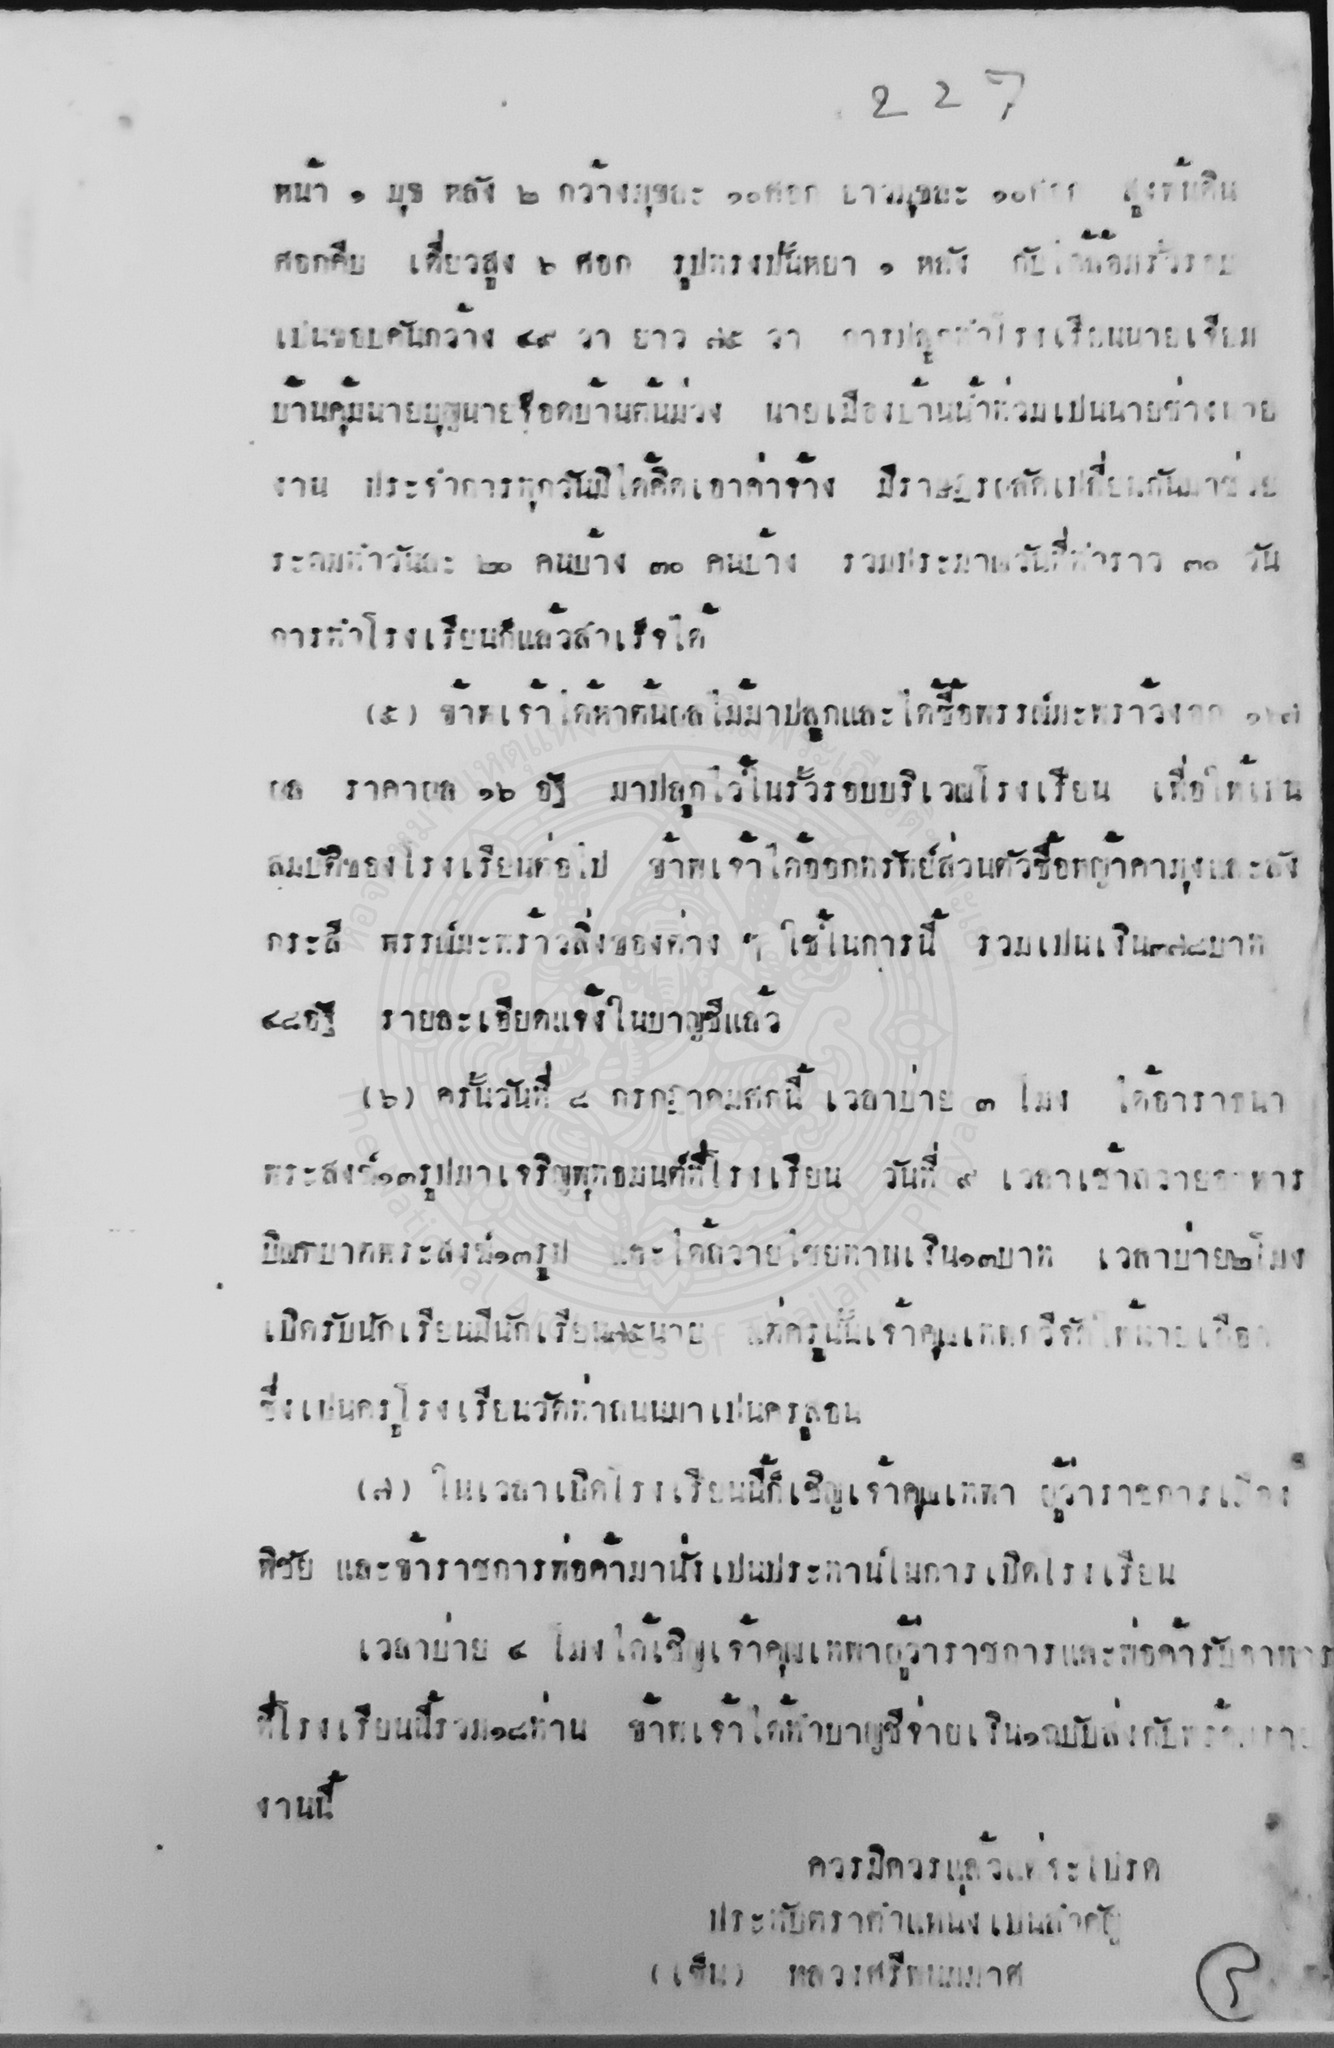 227
หน้า ๑ มุข หลัง ๒ กว้างมุขละ ๑๐ศอก ยาวมุขละ ๑๐ศอก สูงพ้นดิน
ศอกคืบ เดี่ยวสูง ๖ ศอก รูปทรงปั้นหยา ๑ หลัง กับได้ล้อมรั้วรอบ
เปนขอบคันกว้าง ๔๙ วา ยาว ๗๕ วา การปลูกทำโรงเรียนนายเจียม
บ้านคุ้มนายบุญนายรอดบ้านต้นม่วง นายเมืองบ้านน้ำท่วมเปนนายช่างนาย
งาน ประจำการทุกวันมิได้คิดเอาค่าจ้าง มีราษฎรผลัดเปลี่ยนกันมาช่วย
ระดมทำวันละ ๒๐ คนบ้าง ๓๐ คนบ้าง รวมประมาณวันที่ทำราว ๓๐ วัน
การทำโรงเรียนก็แล้วสำเร็จได้
(๕) ข้าพเจ้าได้หาต้นผลไม้มาปลูกและได้ซื้อพรรณ์มะพร้าวงอก
ผล ราคาผล ๑๖ อัฐ มาปลูกไว้ในรั้วรอบบริเวณโรงเรียน เพื่อให้เปน
สมบัติของโรงเรียนต่อไป ข้าพเจ้าได้ออกทรัพย์ส่วนตัวซื้อหญ้าคามุงและสัง
กระสี พรรณ์มะพร้าวสิ่งของต่าง ๆ ใช้ในการนี้ รวมเปนเงิน๓๗๘บาท
๔๘อัฐ รายละเอียดแจ้งในบาญชีแล้ว
(๖) ครั้นวันที่ ๘ กรกฎาคมศกนี้ เวลาบ่าย ๓ โมง ได้อาราธนา
พระสงฆ์๑๓รูปมาเจริญพุทธมนต์ที่โรงเรียน วันที่ ๙ เวลาเช้าถวายอาหาร
บิณฑบาตพระสงฆ์๑๓รูป และได้ถวายไชยทานเงิน๑๓บาท เวลาบ่าย๒โมง
เปิดรับนักเรียนมีนักเรียน๗๕นาย แต่ครูนั้นเจ้าคุณเทพกวีจัดให้นายเทือก
ซึ่งเปนครูโรงเรียนวัดท่าถนนมาเปนครูสอน
(๗) ในเวลาเปิดโรงเรียนนี้ก็เชิญเจ้าคุณเทพา ผู้ว่าราชการเมือง
พิชัย และข้าราชการพ่อค้ามานั่งเปนประทานในการเปิดโรงเรียน
เวลาบ่าย ๔ โมงได้เชิญเจ้าคุณเทพาผู้ว่าราชการและพ่อค้ารับอาหาร
ที่โรงเรียนนี้รวม๑๘ท่าน ข้าพเจ้าได้ทำบาญชีจ่ายเงิน๑ฉบับส่งกับพร้อมราย
งานนี้
ควรมิควรแล้วแต่จะโปรด
ประทับตราตำแหน่งเปนสำคัญ
(เซ็น) หลวงศรีพนมมาศ
หอจดหมายเหตุแห่งชาติเฉลิมพระเกียรติฯ พะเยา
The National Archives of Thailand Phayao